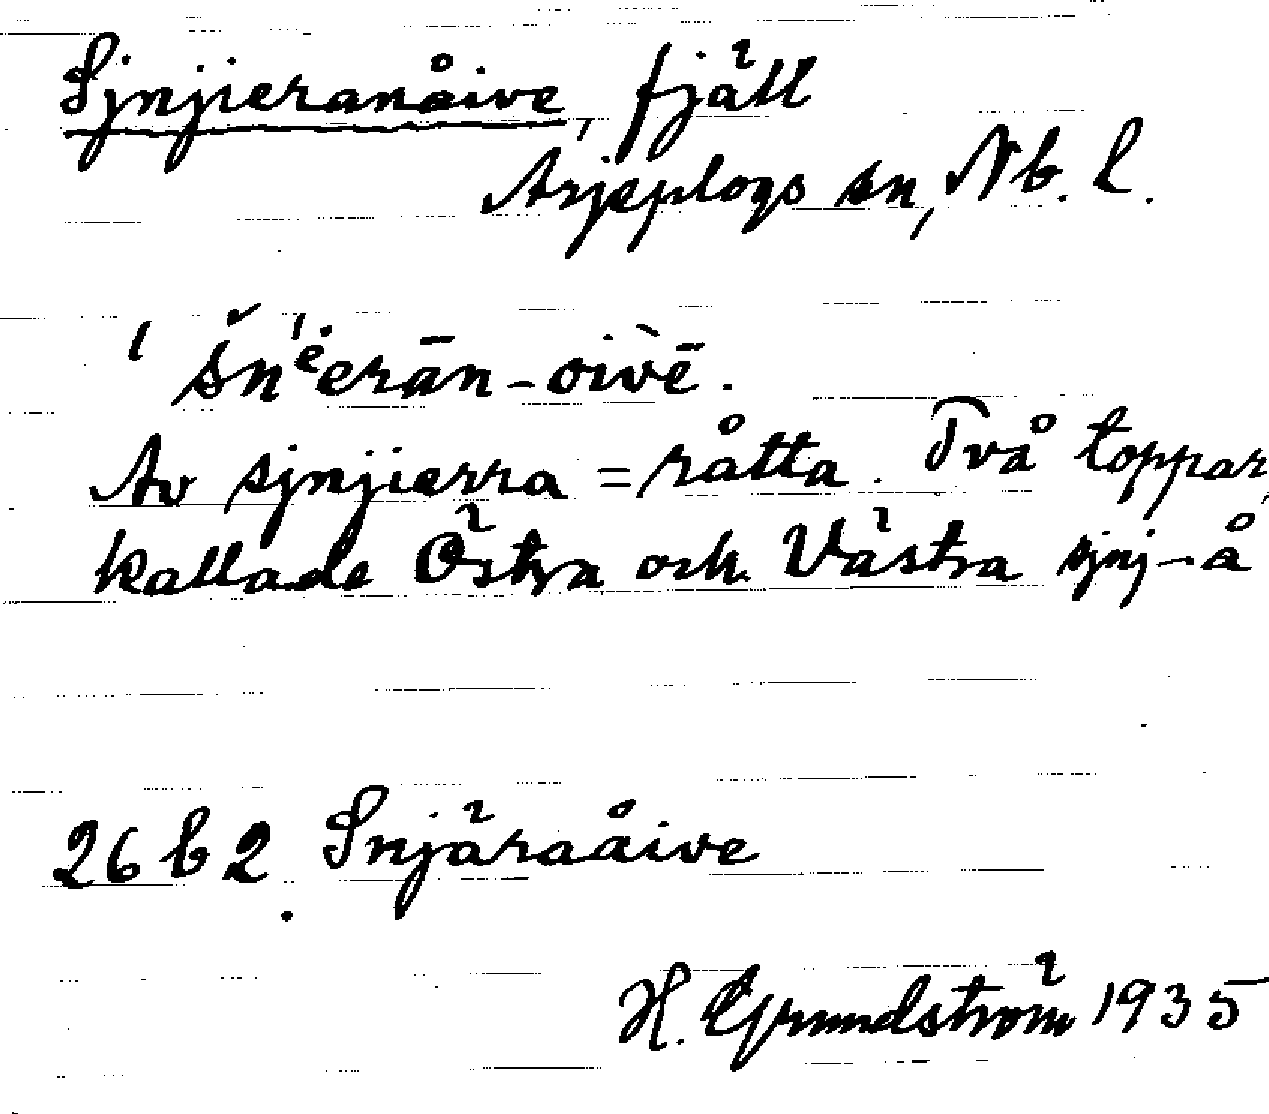 Sjnjieranåive, fjäll
Arjeplogs sn, Nb. l.
ˈšńˈėerān-oi̯vē.
Av sjnjierra = råtta. Två toppar,
kallade Östra och Västra sjnj-å
26 b 2. Snjäraåive
H. Grundström 1935